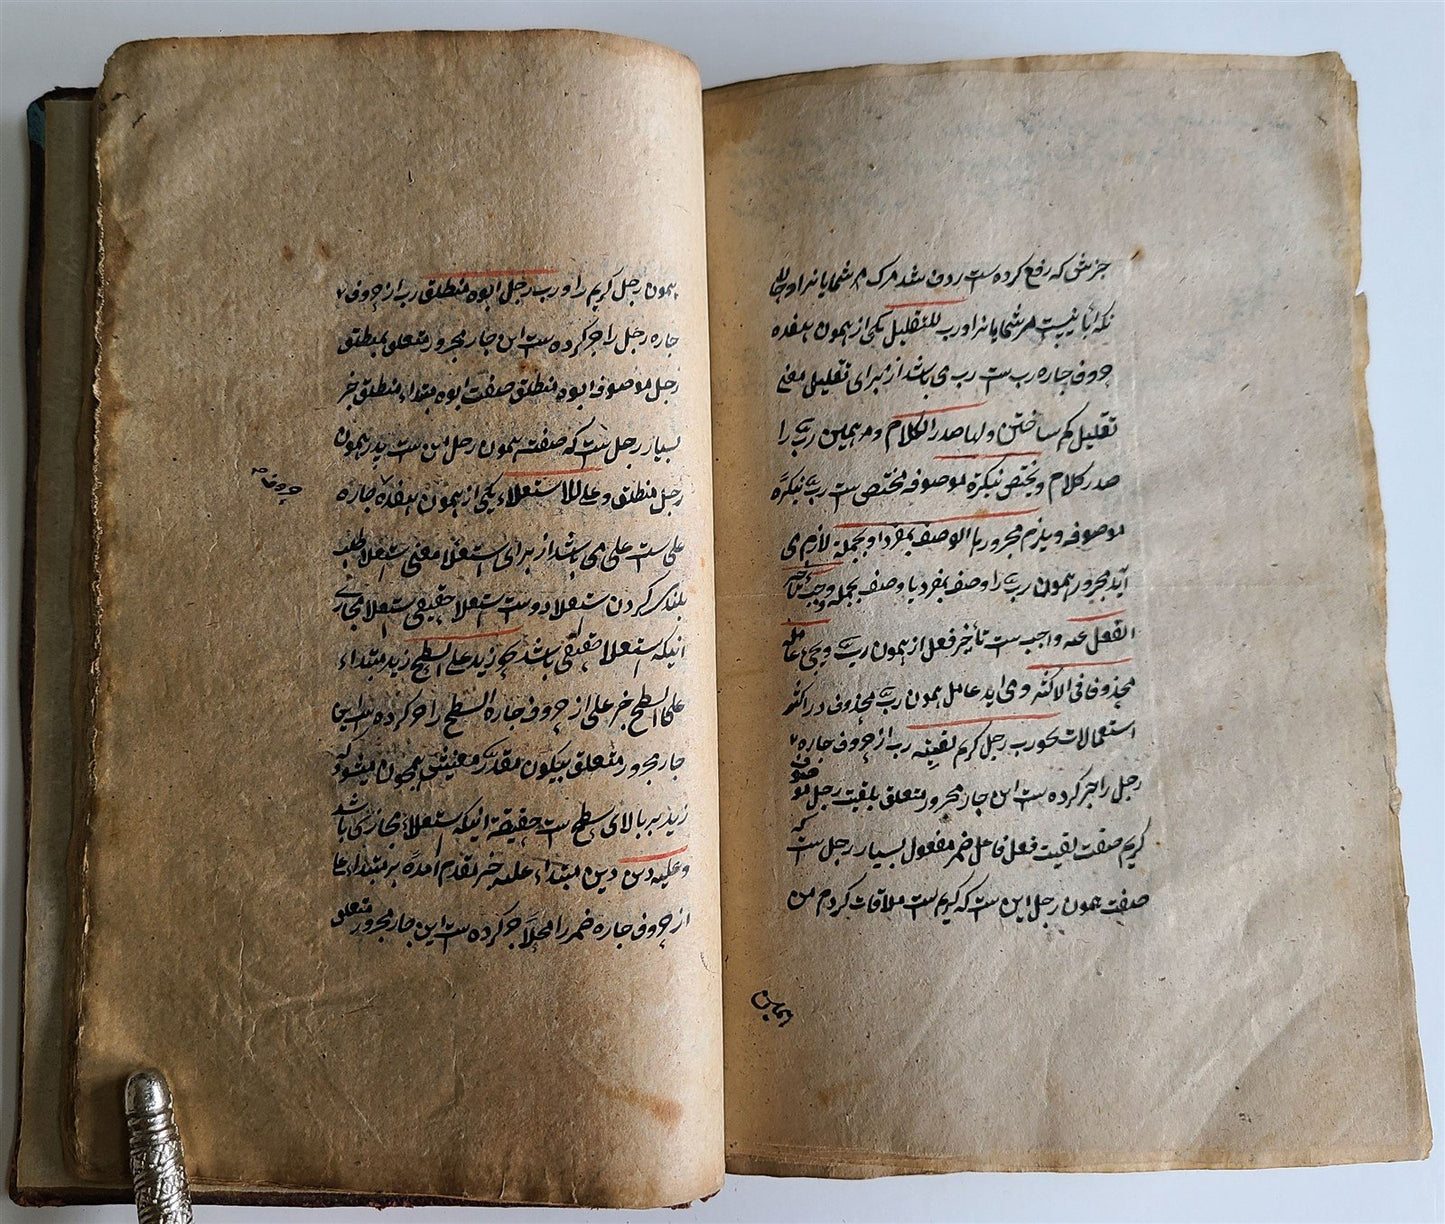 جزش که رفع کرده ست ردف شد مرک
نکه اثبات نیست م شما یا نرا و رب للتقلیل یکی از همون هفده
حروف جاره رب ست رب می باشد از برای تقلیل معنی
تقلیل کم ساختن ولها صدر الکلام و مر همین رب را
صدر کلام و یختص بنکرة موصوفة مختص ست رب بنکره
موصوفه و یلزم مجرورها الوصف بمفرد او بجملة لازم می
آید مجرور همون رب را وصف بمفرد یا وصف بجمله و یجب تأخیر
الفعل عنه واجب ست تأخیر فعل از همون رب و یجئ عامله
محذوفا فی الاکثر و می اید عامل همون رب محذوف در اکثر
استعمالات نحو رب رجل کریم لقیته رب از حروف جاره
رجل را جر کرده ست این جار مجرور متعلق بلقیت رجل موصوف
کریم صفت لقیت فعل فاعل ضمر مفعول بسیار رجل ست که
صفت همون رجل این ست که کریم ست ملاقات کردم من
همون رجل کریم را و رب رجل ابوه منطلق رب از حروف
جاره رجل را جر کرده ست این جار مجرور متعلق بمنطلق
رجل موصوف ابوه منطلق صفت ابوه مبتداء منطلق خبر
بسیار رجل ست که صفت همون رجل این ست پدر همون
رجل منطلق و علی للاستعلاء یکی از همون هفده جاره
علی ست علی می باشد از برای استعلا معنی استعلا طلب
بلندی کردن استعلا دو ست استعلا حقیقی استعلا مجازی
انیکه استعلا حقیقی باشد چو زید علی السطح زید مبتداء
علی السطح خبر علی از حروف جاره السطح را جر کرده ست این
جار مجرور متعلق بیکون مقدر معنیش همچون میشود که
زید بر بالای سطح ست حقیقة انیکه استعلاء مجازی باشد
و علیه دین دین مبتداء علیه خبر مقدم امده بر مبتداء علی
از حروف جاره ضمر را محلاً جر کرده ست این جار مجرور متعلق